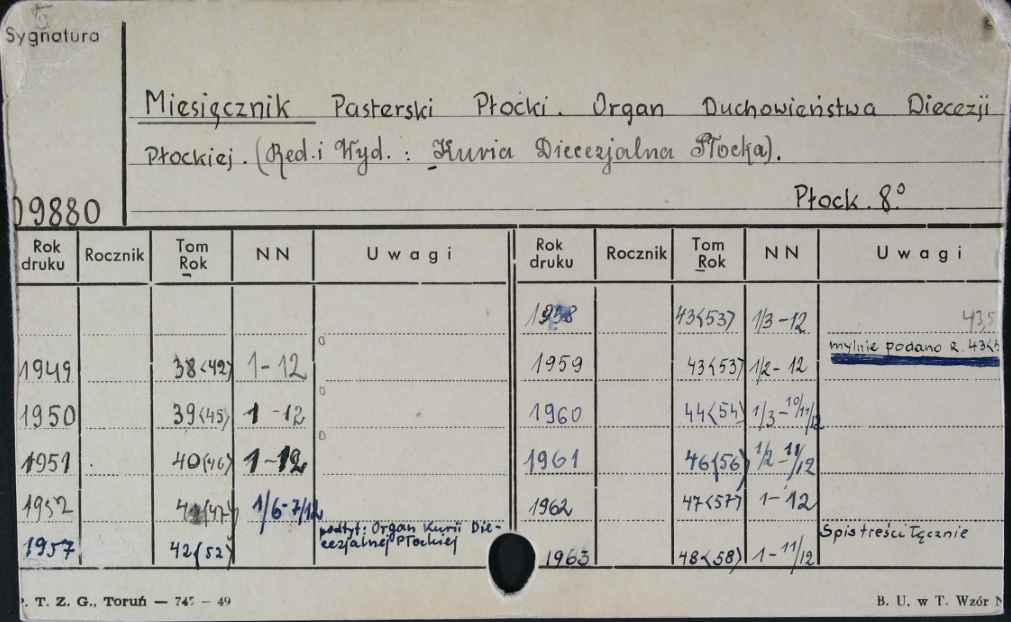 Sygnatura
Miesięcznik Pasterski Płocki. Organ Duchowieństwa Diecezji
Płockiej. (Red. i Wyd.: Kuria Diecezjalna Płocka).
09880 Płock. 8°
Rok druku Rocznik Tom Rok NN Uwagi Rok druku Rocznik Tom Rok NN Uwagi
1958 43<53> 1/3-12 43,5
mylnie podano R. 43<5
1949 38<42> 1-12 1959 43<53> 1/2-12
1950 39<45> 1-12 1960 44<54> 1/3-10/11/12
1951 40<46> 1-12 1961 46<56> 1/2-11/12
1952 41<47> 1/6-7/12 1962 47<57> 1-12
podtyt: Organ Kurii Die-
cezjalnej Płockiej
Spis treści łącznie
1957 42<52> 1963 48<58> 1-11/12
. T. Z. G., Toruń — 745 — 49 B. U. w T. Wzór N